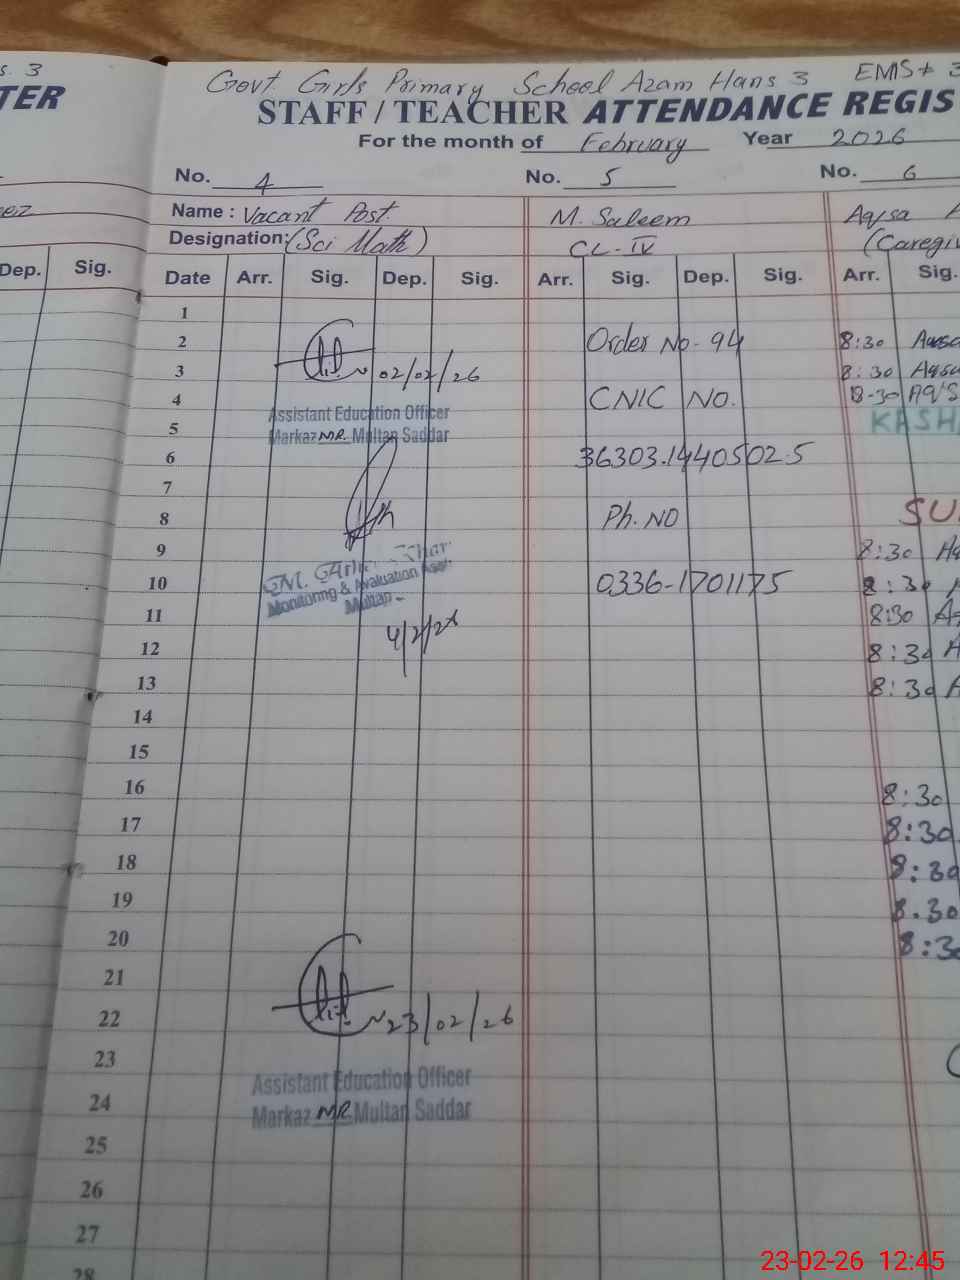 s. 3
TER
Govt Girls Primary School Azam Hans 3 EMIS# 3
STAFF / TEACHER ATTENDANCE REGIS
For the month of February Year 2026
No. 4 No. 5 No. 6
Name : Vacant Post. M. Saleem Aqsa
Designation: (Sci Math) CL-IV (Caregiv
Dep. Sig. Date Arr. Sig. Dep. Sig. Arr. Sig. Dep. Sig. Arr. Sig.
1
2 Order No. 94 8:30
3 02/02/26 8:30 Aqsa
4 CNIC NO. 8-30 AQS
Assistant Education Officer
5 Markaz MR. Multan Saddar KASH
6 36303.1440502.5
7
8 Ph. NO SU
9 8:30
10 Monitoring & Avaluation Asst. 0336-1701175 8:30
Multan
11 8:30
12 4/2/26 8:30
13 8:30
14
15
16 8:30
17 8:30
18 8:30
19 8.30
20 8:30
21
22 23/02/26
23
Assistant Education Officer
24 Markaz MR Multan Saddar
25
26
27
28
23-02-26 12:45